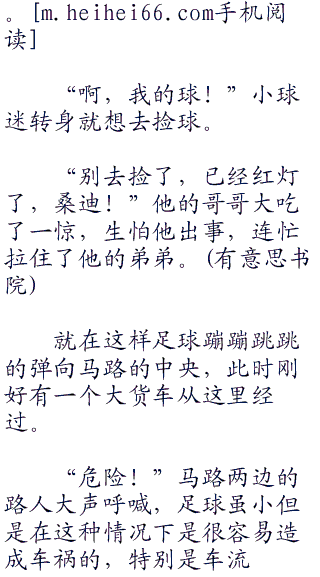 。[m.heihei66.com手机阅
读]
“啊，我的球！”小球
迷转身就想去捡球。
“别去捡了，已经红灯
了，桑迪！”他的哥哥大吃
了一惊，生怕他出事，连忙
拉住了他的弟弟。(有意思书
院)
就在这样足球蹦蹦跳跳
的弹向马路的中央，此时刚
好有一个大货车从这里经
过。
“危险！”马路两边的
路人大声呼喊，足球虽小但
是在这种情况下是很容易造
成车祸的，特别是车流